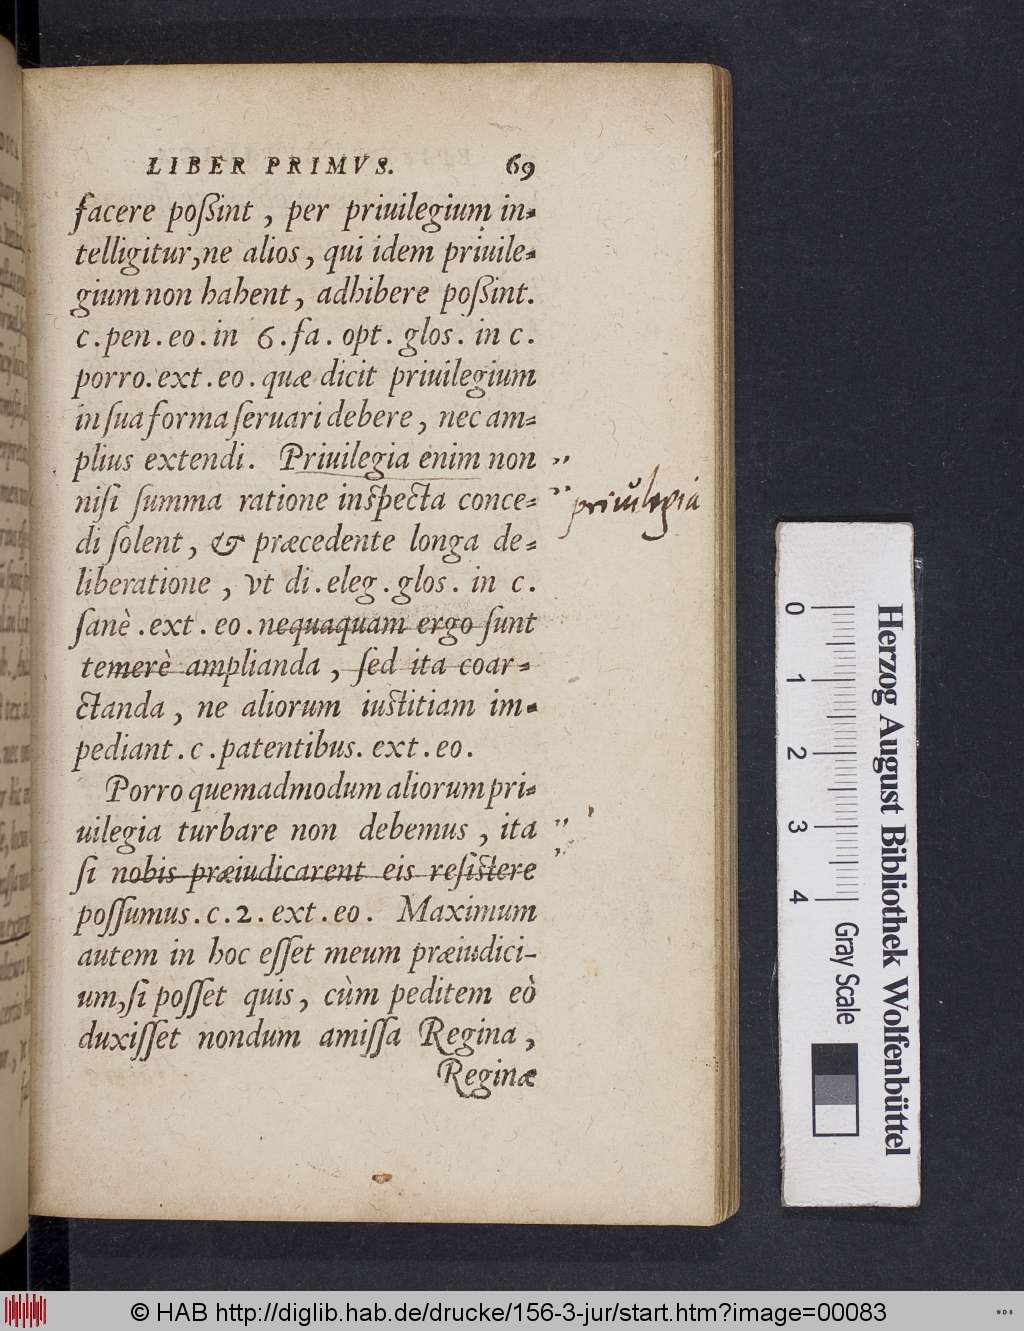 LIBER PRIMVS. 69
facere poſsint, per priuilegium in-
telligitur, ne alios, qui idem priuile-
gium non habent, adhibere poſsint.
c. pen. eo. in 6. fa. opt. glos. in c.
porro. ext. eo. quæ dicit priuilegium
in ſua forma ſeruari debere, nec am-
plius extendi. Priuilegia enim non ,,
niſi ſumma ratione inſpecta conce- ,,
priuilegia
di ſolent, & præcedente longa de-
liberatione, vt di. eleg. glos. in c.
ſanè. ext. eo. nequaquam ergo ſunt
temerè amplianda, ſed ita coar-
ctanda, ne aliorum iuſtitiam im-
pediant. c. patentibus. ext. eo.
Porro quemadmodum aliorum pri-
uilegia turbare non debemus, ita ,,
ſi nobis præiudicarent eis reſiſtere ,,
poſſumus. c. 2. ext. eo. Maximum
autem in hoc eſſet meum præiudici-
um, ſi poſſet quis, cùm peditem eò
duxiſſet nondum amiſſa Regina,
Reginæ
0 1 2 3 4
Gray Scale
Herzog August Bibliothek Wolfenbüttel
© HAB http://diglib.hab.de/drucke/156-3-jur/start.htm?image=00083
WDB